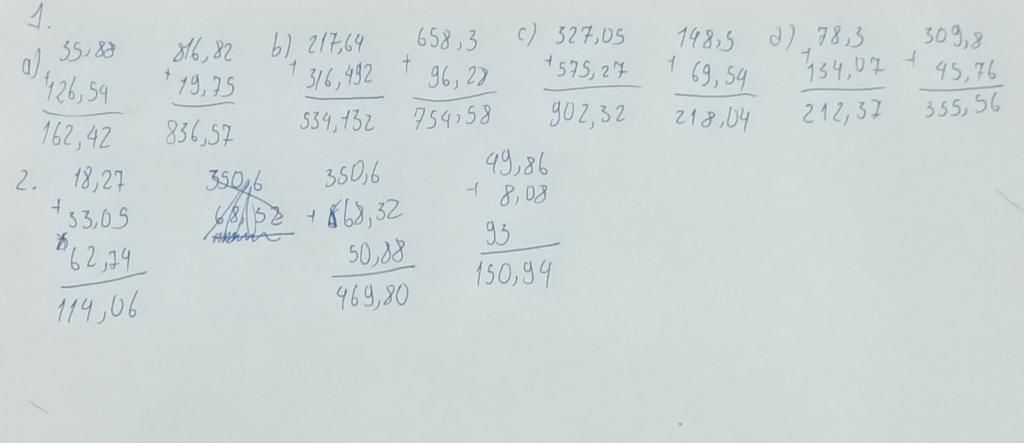 1.
a) 35,88 816,82 b) 217,64 658,3 c) 327,05 148,5 d) 78,3 309,8
+ 126,54 + 19,75 + 316,492 + 96,28 + 575,27 + 69,54 + 134,07 + 45,76
162,42 836,57 534,132 754,58 902,32 218,04 212,37 355,56
2. 18,27 350,6 350,6 49,86
+ 33,05 68,32 + 68,32 + 8,08
62,74 50,88 93
114,06 469,80 150,94